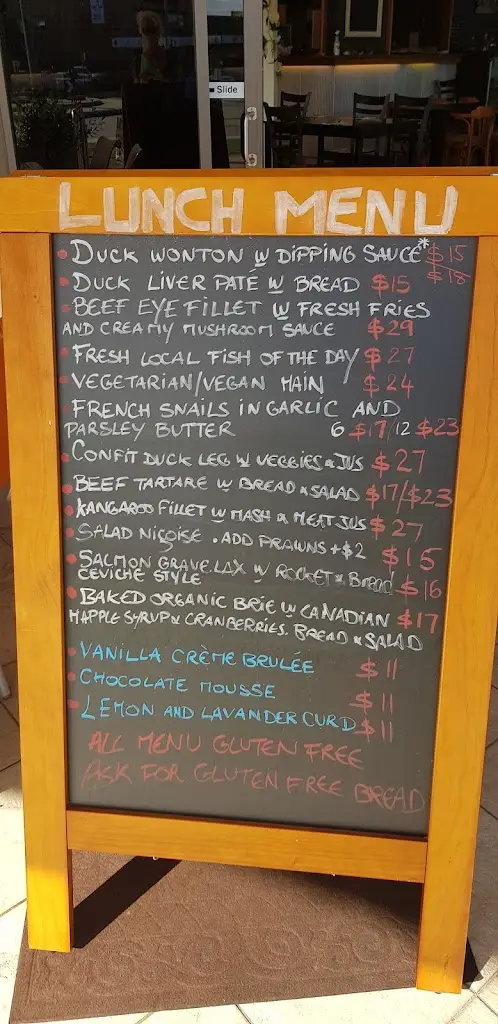 Slide
LUNCH MENU
DUCK WONTON W DIPPING SAUCE* $15
$18
DUCK LIVER PATÉ W BREAD $15
BEEF EYE FILLET W FRESH FRIES
AND CREAMY MUSHROOM SAUCE $29
FRESH LOCAL FISH OF THE DAY $27
VEGETARIAN/VEGAN MAIN $24
FRENCH SNAILS IN GARLIC AND
PARSLEY BUTTER 6 $17/12 $23
CONFIT DUCK LEG W VEGGIES & JUS $27
BEEF TARTARE W BREAD & SALAD $17/$23
KANGAROO FILLET W MASH & MEAT JUS $27
SALAD NIÇOISE . ADD PRAWNS +$2 $15
SALMON GRAVELAX W ROCKET & BREAD $16
CEVICHE STYLE
BAKED ORGANIC BRIE W CANADIAN $17
MAPPLE SYRUP & CRANBERRIES. BREAD & SALAD
VANILLA CRÈME BRULÉE $11
CHOCOLATE MOUSSE $11
LEMON AND LAVANDER CURD $11
ALL MENU GLUTEN FREE
ASK FOR GLUTEN FREE BREAD